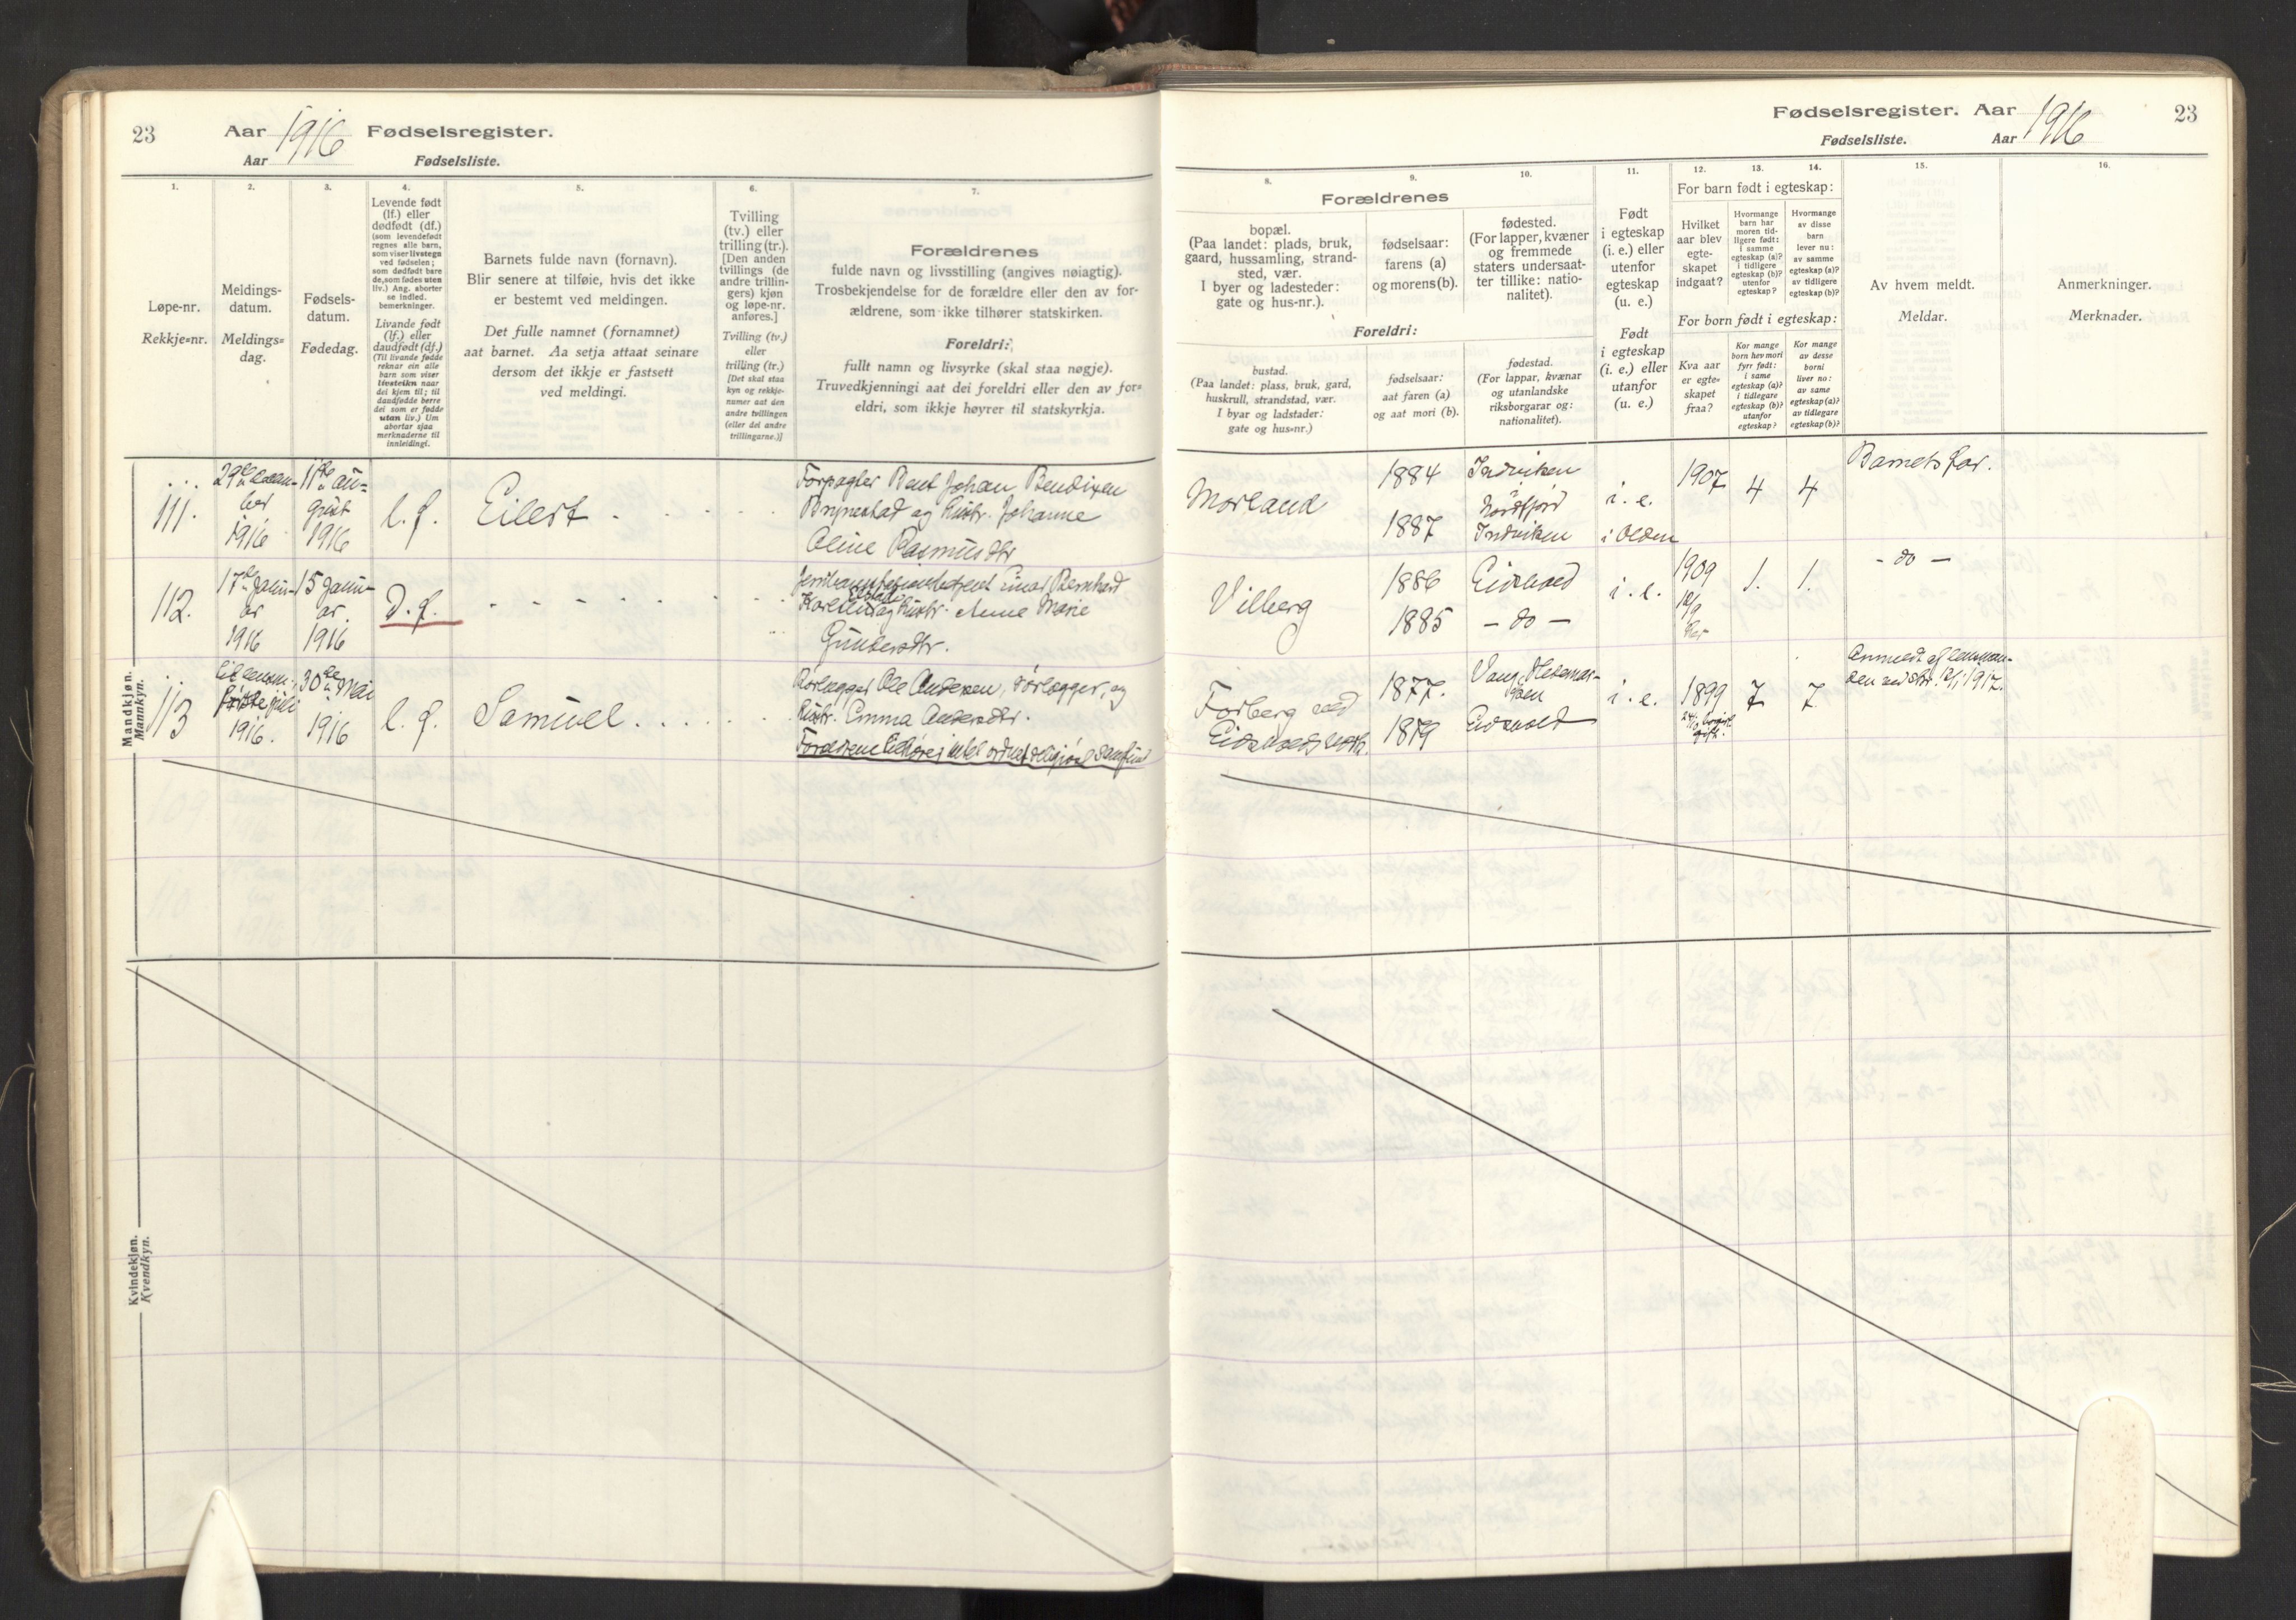 23
Aar 1916 Fødselsregister.
Aar Fødselsliste.
1.
Løpe-nr.
Rekkje=nr.
2.
Meldings-
datum.
Meldings=
dag.
3.
Fødsels-
datum.
Fødedag.
4.
Levende født
(lf.) eller
dødfødt (df.)
(som levendefødt
regnes alle barn,
som viser livstegn
ved fødselen;
som dødfødt bare
de, som fødes uten
liv.) Ang. aborter
se indled.
bemerkninger.
Livande født
(lf.) eller
daudfødt (df.)
(Til livande fødde
reknar ein alle
barn som viser
livsteikn naar
dei kjem til; til
daudfødde berre
dei som er fødde
utan liv.) Um
abortar sjaa
merknaderne til
innleidingi.
5.
Barnets fulde navn (fornavn).
Blir senere at tilføie, hvis det ikke
er bestemt ved meldingen.
Det fulle namnet (fornamnet)
aat barnet. Aa setja attaat seinare
dersom det ikkje er fastsett
ved meldingi.
6.
Tvilling
(tv.) eller
trilling (tr.).
[Den anden
tvillings (de
andre trillin-
gers) kjøn
og løpe-nr.
anføres.]
Tvilling (tv.)
eller
trilling (tr.)
[Det skal staa
kyn og rekkje-
numer aat den
andre tvillingen
(eller dei andre
trillingarne.)]
7.
Forældrenes
fulde navn og livsstilling (angives nøiagtig).
Trosbekjendelse for de forældre eller den av for-
ældrene, som ikke tilhører statskirken.
Foreldri:
fullt namn og livsyrke (skal staa nøgje).
Truvedkjenningi aat dei foreldri eller den av for=
eldri, som ikkje høyrer til statskyrkja.
Mandkjøn.
Mannkyn.
111.
29de
1916
11te au=
gust
1916
l. f.
Eilert
Forpagter Bent Johan Bendixen
og hustr. Johanne
Oline Rasmusdtr
112.
17de Janu-
ar
1916
15 Janu-
ar.
1916
d. f.
Einar Bernhard
og hustr. Anne Marie
Gundersdtr.
113
juli
1916.
30de Mai
1916
l. f.
Samuel
Rørlægger Ole Andersen, rørlægger, og
hustr. Emma Andersdtr.
Kvindekjøn.
Kvendkyn.
Fødselsregister. Aar 1916
23
Fødselsliste. Aar
8.
Forældrenes
bopæl.
(Paa landet: plads, bruk,
gaard, hussamling, strand-
sted, vær.
I byer og ladesteder:
gate og hus-nr.).
Foreldri:
bustad.
(Paa landet: plass, bruk, gard,
huskrull, strandstad, vær.
I byar og ladstader:
gate og hus=nr.)
9.
fødselsaar:
farens (a)
og morens (b).
fødselsaar:
aat faren (a)
og aat mori (b).
10.
fødested.
(For lapper, kvæner
og fremmede
staters undersaat-
ter tillike: natio-
nalitet).
fødestad.
(For lappar, kvænar
og utanlandske
riksborgarar og:
nationalitet).
11.
Født
i egteskap
(i. e.) eller
utenfor
egteskap
(u. e.)
Født
i egteskap
(i. e.) eller
utanfor
egteskap
(u. e.)
12.
13.
14.
For barn født i egteskap:
Hvilket
aar blev
egte-
skapet
indgaat?
Hvormange
barn har
moren tid-
ligere født:
i samme
egteskap (a)?
i tidligere
egteskap (b)?
utenfor
egteskap?
Hvormange
av disse
barn
lever nu:
av samme
egteskap (a)?
av tidligere
egteskap (b)?
For born født i egteskap:
Kva aar
er egte=
skapet
fraa?
Kor mange
born hev mori
fyrr født:
i same
egteskap (a)?
i tidlegare
egteskap (b)?
utanfor
egteskap?
Kor mange
av desse
borni
liver no:
av same
egteskap (a)?
av tidlegare
egteskap (b)?
15.
Av hvem meldt.
Meldar.
16.
Anmerkninger.
Merknader.
Morland
1884
1887
Indviken
i
Nordfjord
Indviken i Olden
i. e.
1907
4
4
Barnets far.
Vilberg
1886
1885
Eidsvold
- do -
i. e.
1909
1.
1.
- do -
Forberg ved
Eidsvolds
1877.
1879
Vang, Hedemar-
ken
Eidsvold
i. e.
1899
7
7
Anmeldt af lensman-
den ved skr. 12/1 1917.